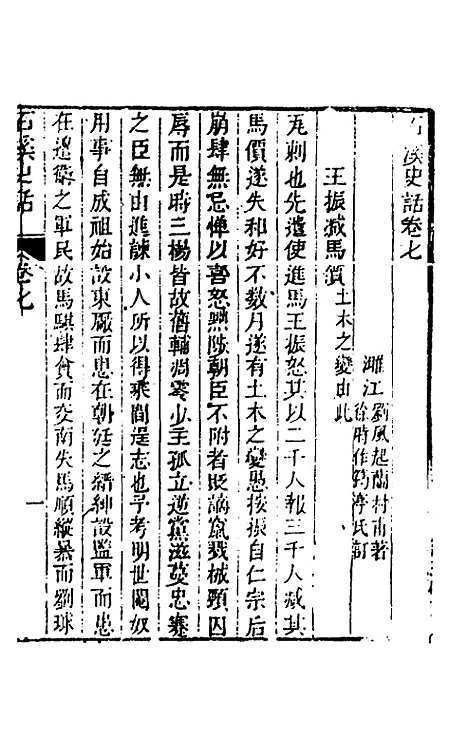 石溪史話卷七
濉江劉鳳起蘭村甫著
徐時作筠亭氏訂
王振減馬價土木之變由此
瓦剌也先遣使進馬王振怒其以二千人報三千人減其
馬價遂失和好不數月遂有土木之變愚按振自仁宗后
崩肆無忌憚以喜怒黜陟朝臣不附者貶謫竄戮械頸囚
辱而是時三楊皆故舊輔凋零少主孤立逆黨滋蔓忠謇
之臣無由進諫小人所以得乘間逞志也予考明世閹奴
用事自成祖始設東廠而患在朝廷之縉紳設監軍而患
在邊徼之軍民故馬騏肆貪而交南失馬順縱暴而劉球
石溪史話
卷七
一